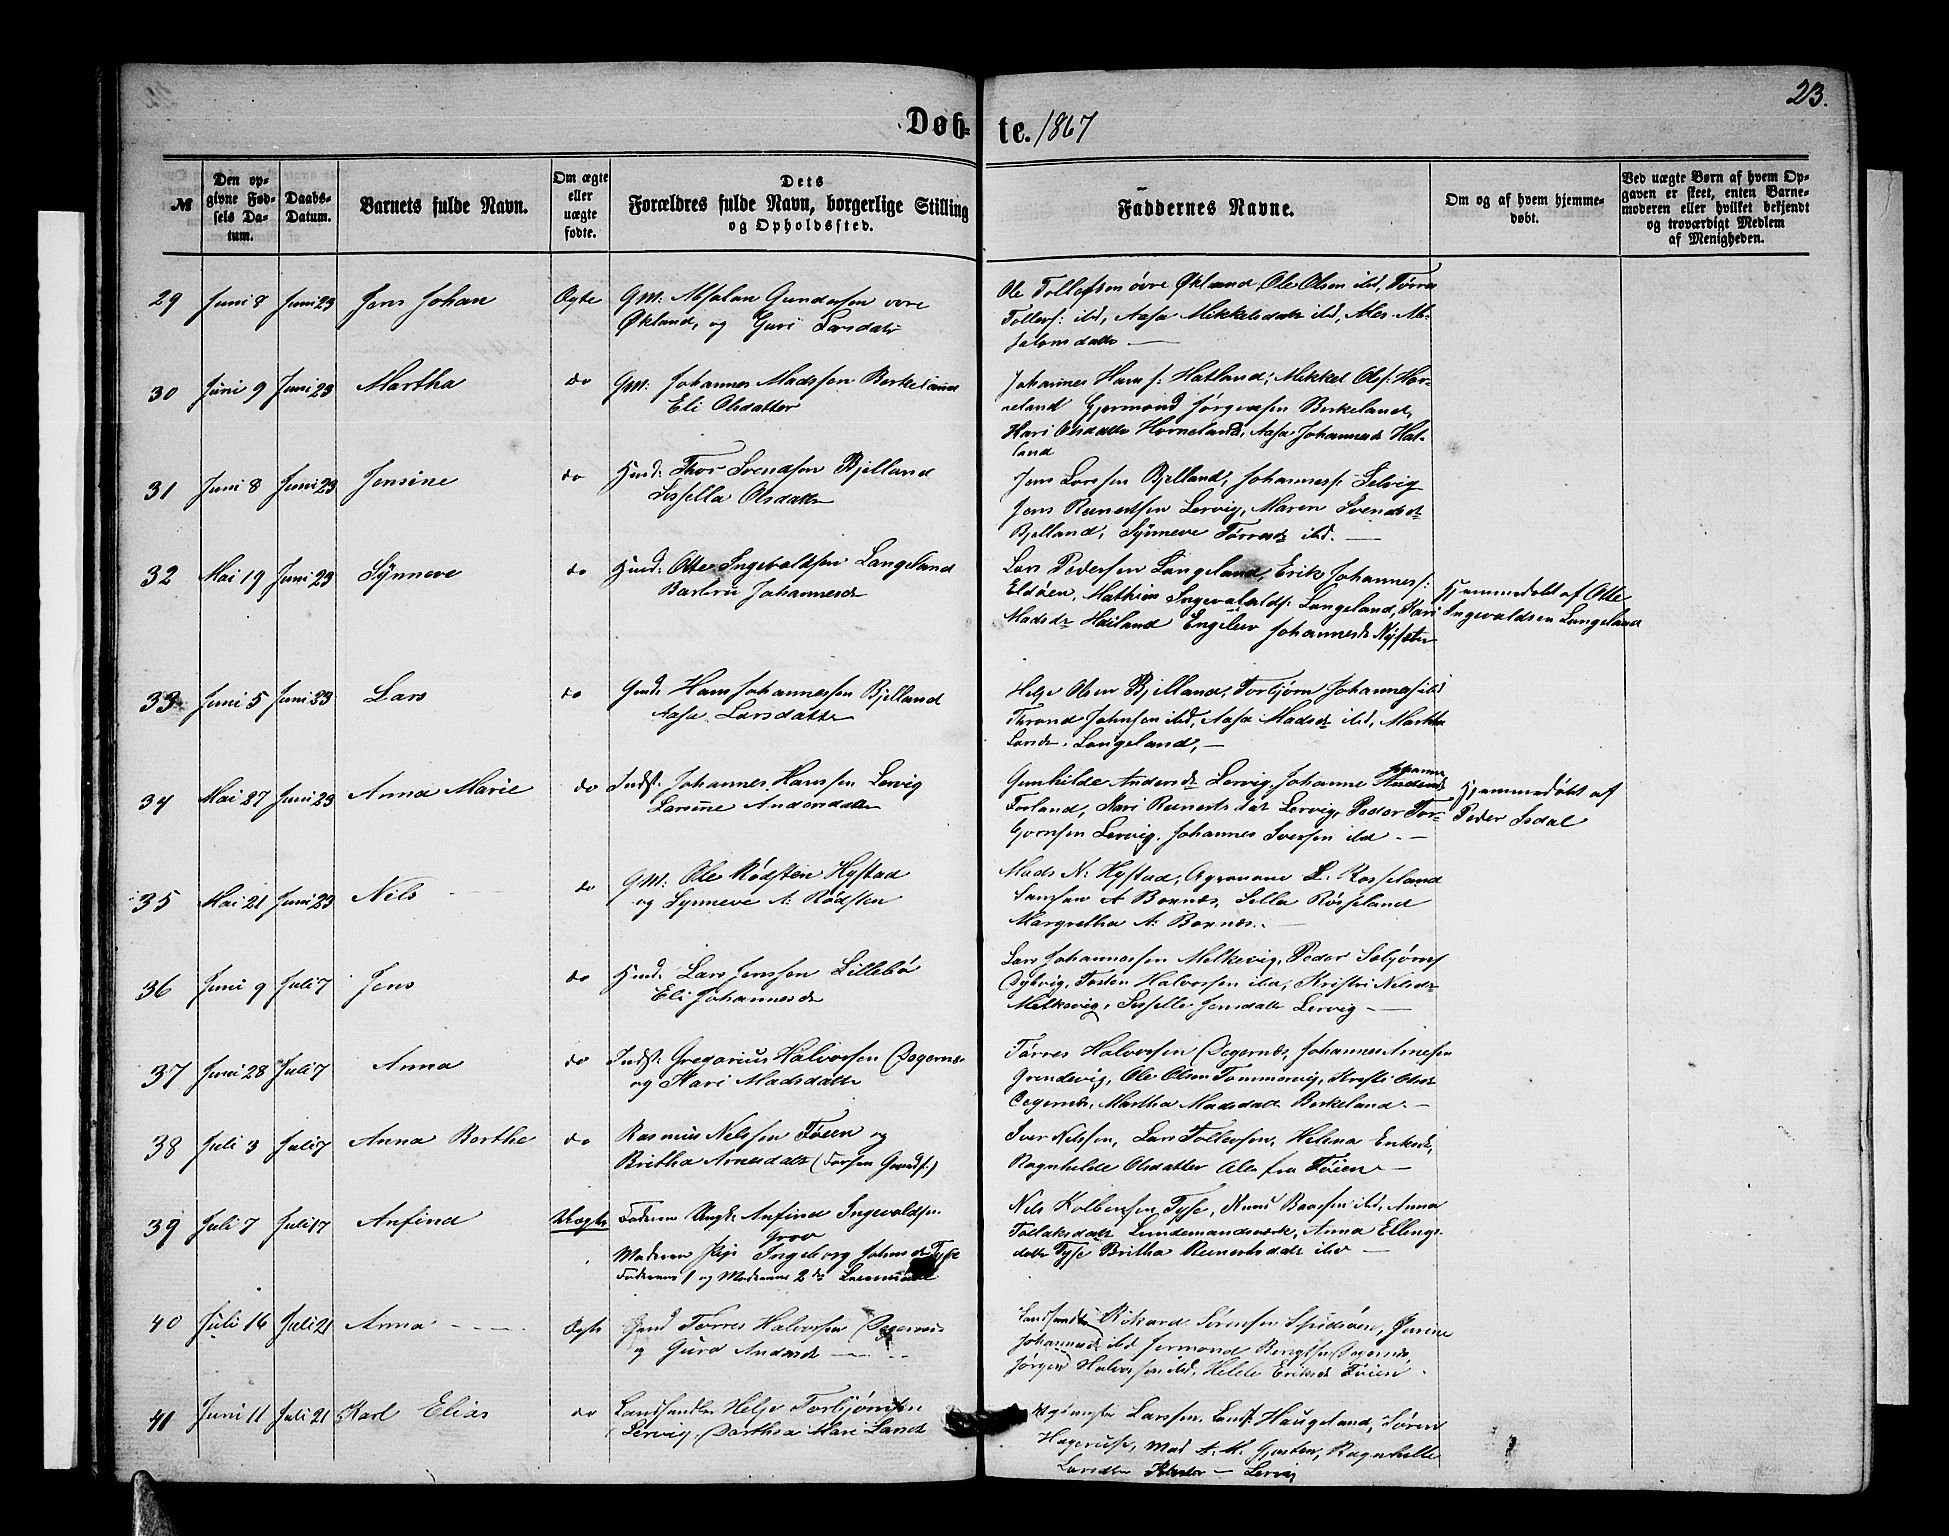 23.
Døb- te. 1867
№
Den op-
givne Fød-
sels Da-
tum.
Daabs-
Datum.
Barnets fulde Navn.
Om ægte
eller
uægte
fødte.
Dets
Forældres fulde Navn, borgerlige Stilling
og Opholdssted.
Faddernes Navne.
Om og af hvem hjemme-
døbt.
Ved uægte Børn af hvem Op-
gaven er skeet, enten Barne-
moderen eller hvilket bekjendt
og troværdigt Medlem
af Menigheden.
29 Juni 8 Juni 23 Jens Johan Ægte Gm: Absalon Gundersen øvre
Økland, og Guri Larsdatr
Ole Tollefsen øvre Økland, Ole Olsen ibd, Tørres
Tollefs: ibd, Aasa Mikkelsdatr ibd,
salomsdatter —
30 Juni 9 Juni 23 Martha do Gm: Johannes Madssen Berkeland
Eli Olsdatter
Johannes Hans s: Hatland, Mikkel Ols: Hor-
neland Gjermond Jørgensen Berkeland,
Kari Olsdatter Horneland, Aasa Johannesd. Hat-
land
31 Juni 8 Juni 23 Jensine do Husd: Thor Svendsen Bjelland
Sissella Olsdatter
Jens Larssen Bjelland, Johannes s: Selvig
Jens Reinertsen Lervig, Maren Svendsdr
Bjelland, Synneve Tørresdr ibd. —
32 Mai 19 Juni 23 Synneve do Husd: Otte Ingevaldsen Langeland
Barbru Johannesdr
Lars Pedersen Langeland, Erik Johannes s:
Eldøen, Mathias Ingevalds: Langeland, Kari
Madsdr Høiland Engelev Johannesdr Nysæter
Hjemmedøbt af Otte
Ingevaldsen Langeland
33 Juni 5 Juni 23 Lars do Gmd: Hans Johannessen Bjelland
Aasa Larsdatter
Helge Olsen Bjelland, Torbjørn Johannes ibd
Thrond Johnsen ibd, Aasa Madsdr ibd, Martha
Larsdr. Langeland, —
34 Mai 27 Juni 23 Anna Marie do Indst: Johannes Hanssen Lervig
Larsine Andersdatter
Gunhilde Andersdr Lervig, Johanne
Førland, Kari Reinertsdat Lervig, Peder Tor-
Lervig, Johannes Iversen ibd —
Hjemmedøbt af
Peder Isdal
35 Mai 21 Juni 23 Nils do Gm: Ole Rødsten Hystad
og Synneve A: Rødsten
Mads N: Hystad, Agronom L. Rosseland
Samson A Børnes, Sella Rosseland
Margretha A: Børnes. —
36 Juni 9 Juli 7 Jens do Husd: Lars Jenssen Lillebø
Eli Johannesdr
Lars Johannessen Melkevig, Peder
Dybvig, Tosten Halvorsen ibd, Kristi Nilsdr
Melkevig, Sisselle Jensdatr Lervig —
37 Juni 28 Juli 7 Anna do Indst: Gregorius Halvorsen Degernes
og Kari Madsdatter
Tørres Halvorsen Degernes, Johannes Arnesen
Grindevig, Ole Olsen Tømmervig, Kristi Olsdr
Degernes, Martha Madsdatr Berkeland —
38 Juli 3 Juli 7 Anna Berthe do Rasmus Nilssen Føien og
Britha Arnesdatr (
Iver Nilssen, Lars Tollefsen, Helena Eriksdr,
Ragnhilde Olsdatter Alle fra Føien —
39 Juli 7 Juli 17 Anfind Uægte Faderen Ungk: Anfind Ingevaldsen
Grov
Moderen Pige Ingeborg Johnsdr Tyse
Faderens 1 og Moderens 2det Leiermaal
Nils Kolbensen Tyse, Knud Baarsen ibd, Anna
Tollaksdatr Lundemandsværk, Anna Ellings-
datr Tyse Britha Reinertsdatr ibd —
40 Juli 16 Juli 21 Anna — Ægte Tørres Halvorsen Degernes
og Guro Andersdr —
Landhandler Rikard Sørensen Spidsøen, Jorine
Johannesdr ibd Jermond Bengtsen Degernes
Jørgen Halvorsen ibd, Helele Eriksdr Føien
41 Juni 11 Juli 21 Karl Elias do Landhandler Helge Torbjørnsen
Lervig, Dorthea Mari Landr
Larssen, Haugeland, Søren
Hagerup, Mad A. K. Gjerten, Ragnhilde
Larsdtr — Lervig